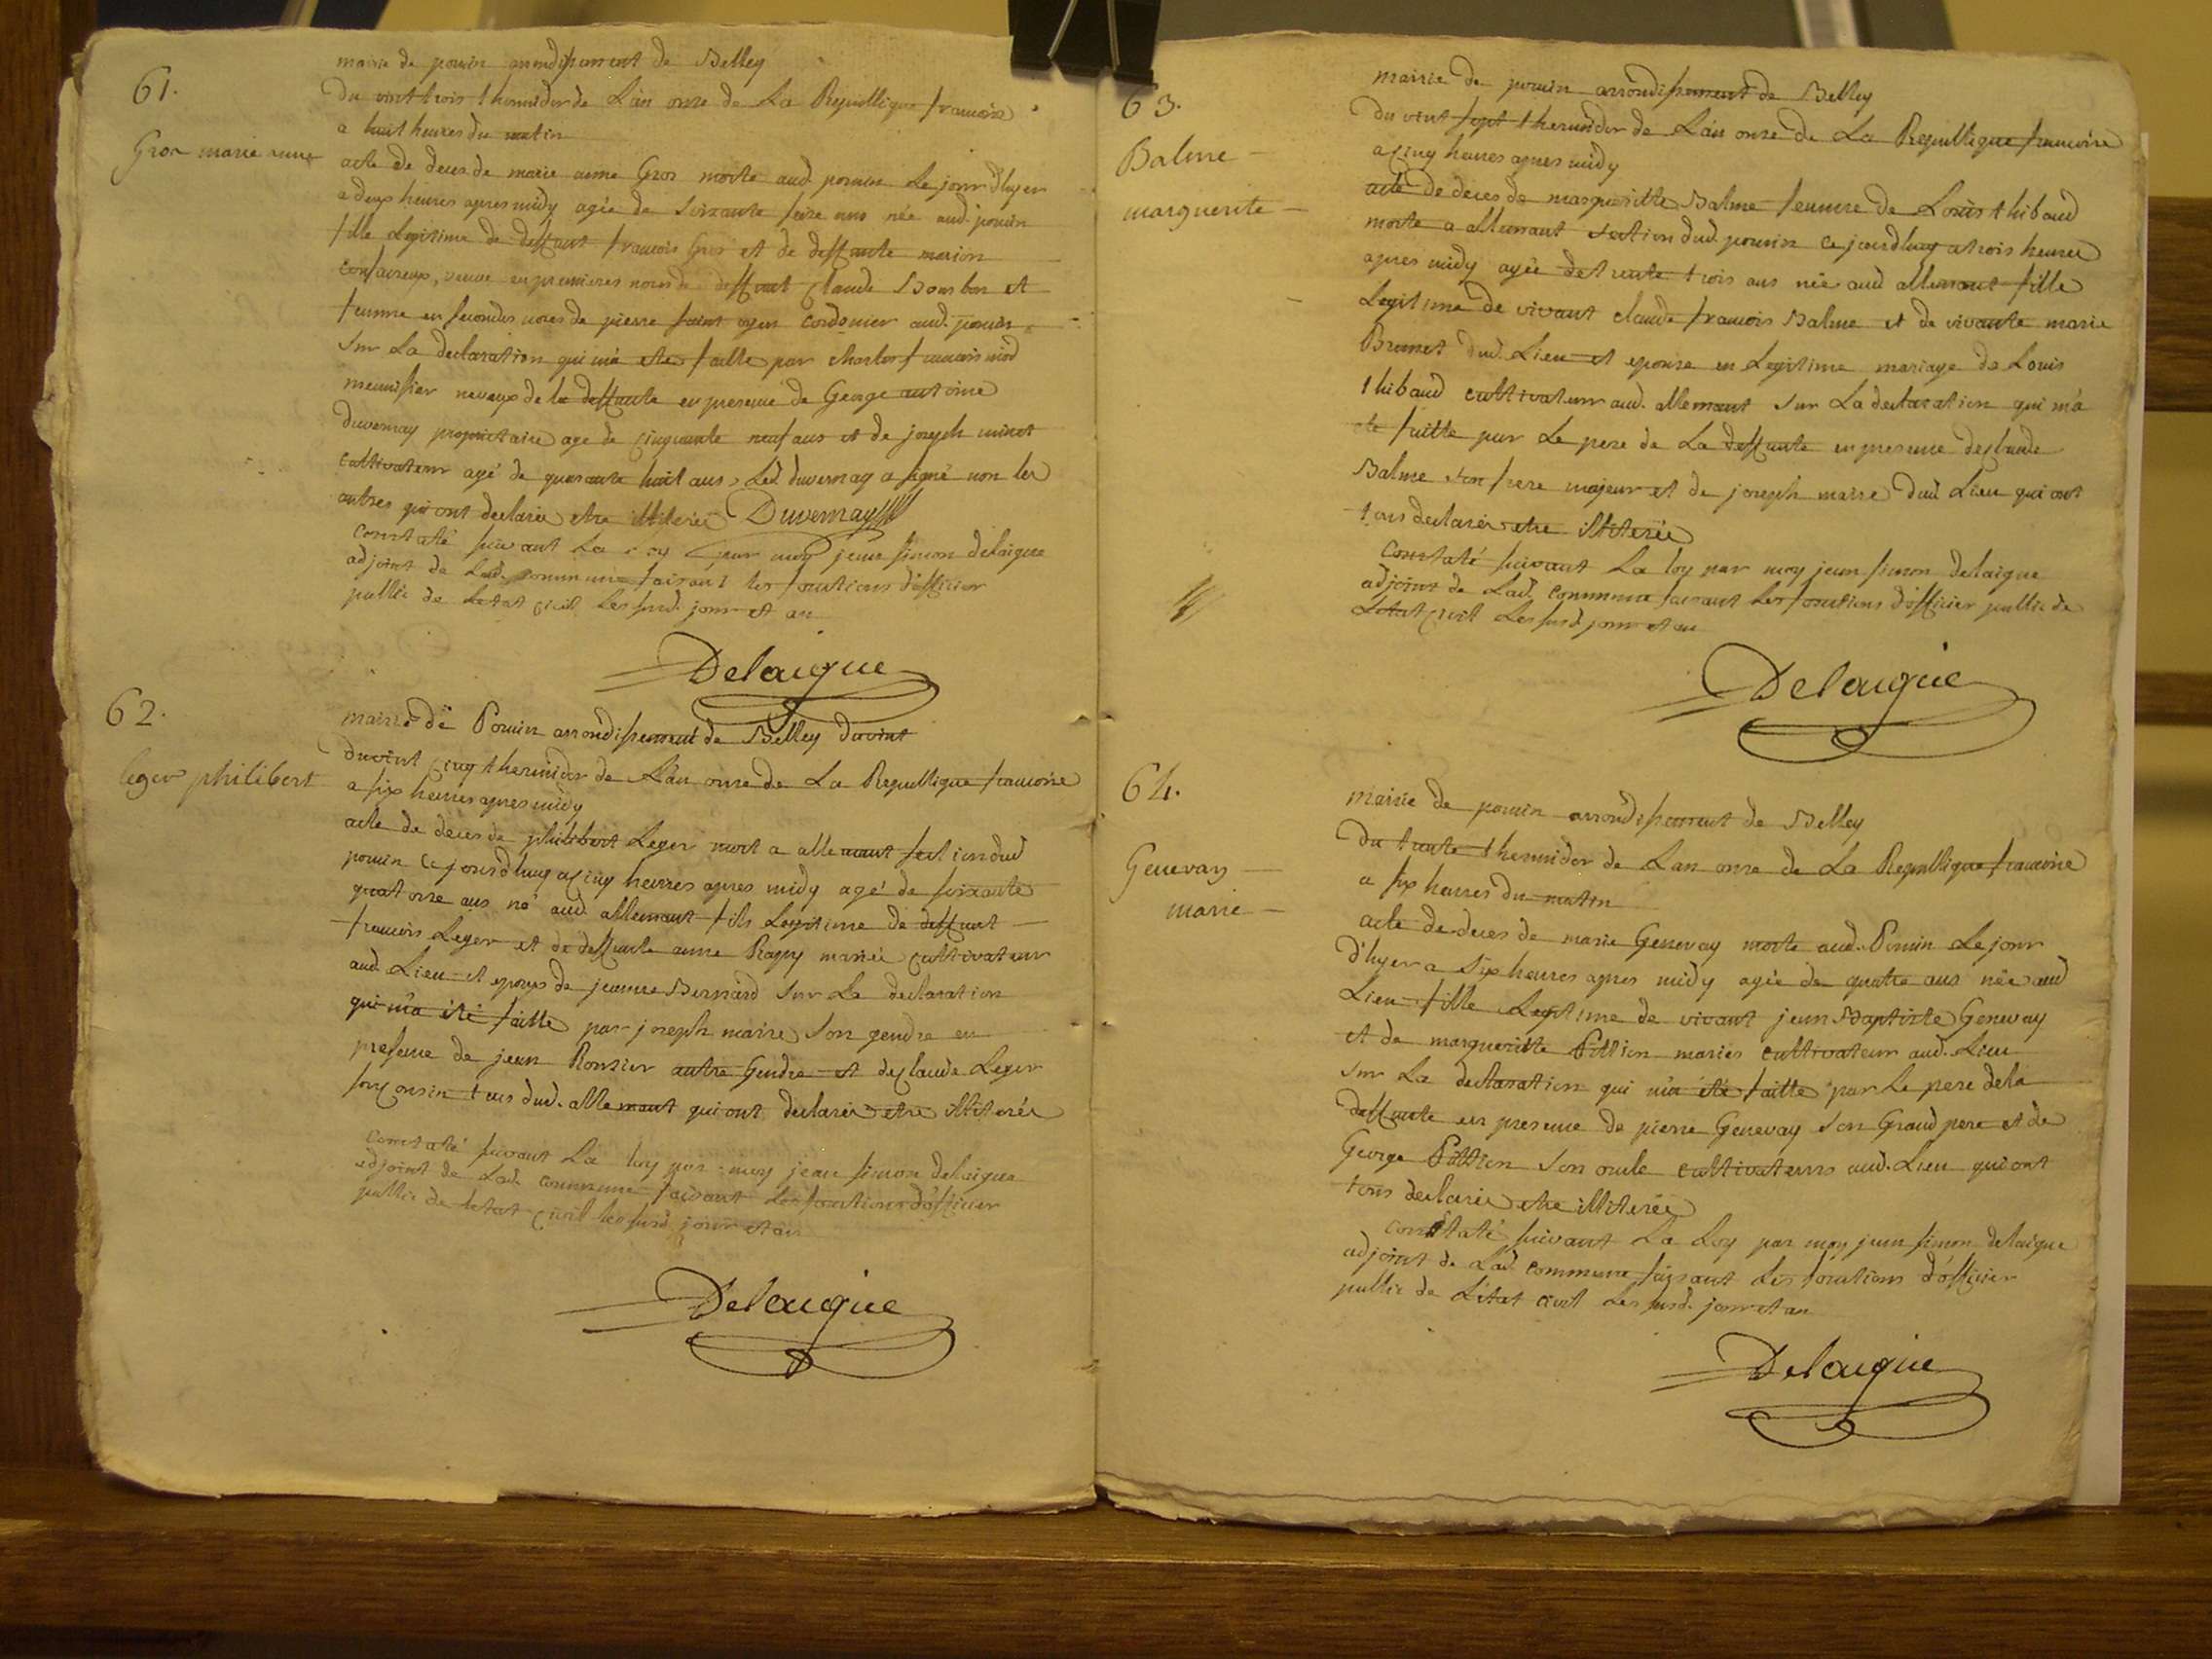 61.
Gros marie anne
mairie de poncin arrondissement de Belley
du vint trois thermidor de L'an onze de La Republique francoise
a huit heures du matin
acte de deces de marie anne Gros morte aud. poncin Le jour d'hyer
a deux heures apres midy agée de soixante seize ans née aud. poncin
fille Legitime de deffunt francois Gros et de deffunte marion
veuve en premieres noces de deffunt Claude Bourbon et
femme en secondes noces de pierre saint oyen cordonier aud. poncin
sur La declaration qui m'a ete faitte par Charles francois niod
meunisier neveux de la deffunte en presence de George antoine
Duvernay proprietaire age de cinquante neuf ans et de joseph
cultivateur agé de quarante huit ans, Led. duvernay a signé non les
autres qui ont declarée etre illiteréé Duvernay
Constaté suivant La loy par moy jean simon delaigue
adjoint de Lad. commune faisant les fonctions d'officier
public de Letat civil Les susd. jour et an
Delaigue
62.
leger philibert
mairie de Poncin arrondissement de Belley du vint
du vint cinq thermidor de L'an onze de La Republique francoise
a six heures apres midy
acte de deces de philibert Leger mort a allemant section dud
poncin Ce jourd'huy a cinq heures apres midy agé de soixante
quatorze ans né aud. allemant fils Legitime de deffunt
francois Leger et de deffunte anne Ragy mariée cultivateur
aud. Lieu et epoux de jeanne Bernard sur La declaration
qui m'a été faitte par joseph maire son gendre en
presence de jean Ronzier autre Gendre et de Claude Leger
son cousin tous dud. allemant qui ont declarée etre illiteréé
Constaté suivant La loy par moy jean simon delaigue
adjoint de Lad. commune faisant Les fonctions d'officier
public de Letat civil Les susd. jour et an
Delaigue
63.
Balme
marguerite
mairie de poncin arrondissement de Belley
du vint sept thermidor de L'an onze de La Republique francoise
a cinq heures apres midy
acte de deces de margueritte Balme femme de Louis thibaud
morte a allemant section dud. poncin ce jourdhuy a trois heures
apres midy agée de trente trois ans née aud allemant fille
Legitime de vivant claude francois Balme et de vivante marie
Brunet dud. Lieu et epouse en Legitime mariage de Louis
thibaud cultivateur aud. allemant sur La declaration qui m'a
ete faitte par Le pere de La deffunte en presence de claude
Balme son frere majeur et de joseph maire dud Lieu qui ont
tous declarée etre illiteréé
Constaté suivant La loy par moy jean simon delaigue
adjoint de Lad. Commune faisant Les fonctions d'officier public de
Letat civil Les susd jour et an
Delaigue
64.
Genevay
marie
mairie de poncin arrondissement de Belley
du trente thermidor de Lan onze de La Republique francoise
a six heures du matin
acte de deces de marie Genevay morte aud. Poncin Le jour
d'hyer a six heures apres midy agée de quatre ans née aud
Lieu fille Legitime de vivant jean Baptiste Genevay
et de margueritte Pittion mariés cultivateur aud. Lieu
sur La declaration qui m'a été faitte par Le pere de la
deffunte en presence de pierre Genevay son Grand pere et de
George Pittion son oncle cultivateurs aud. Lieu qui ont
tous declarée etre illiteréé
Constaté suivant La Loy par moy jean simon delaigue
adjoint de Lad. commune faisant Les fonctions d'officier
public de L'état civil Les susd. jour et an
Delaigue